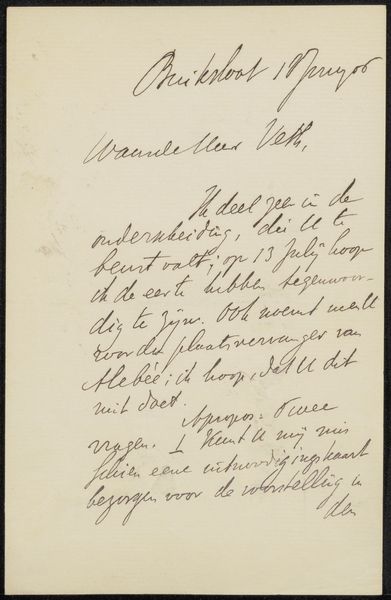 Buiksloot 18 juny 06
Waarde Heer Veth,
Ik deel zeer in de
onderscheiding, die U te
beurt valt; op 13 July hoop
ik de eer te hebben tegenwoor-
dig te zijn. Ook noemt men U
voor den plaatsvervanger van
Alebéé; ik hoop, dat U dit
niet doet.
Apropos: Twee
vragen. 1 Kunt U mij mis
schien eene uitnoodigingskaart
bezorgen voor de voorstelling in
den